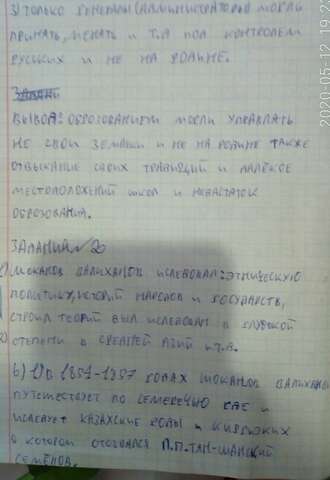 3) только генералы (администраторы) могли
принать, менать и т.д под контролем
руських и не на родине.
вывод: оброзованием могли управлать
не свои землаши и не на родине также
отвыкание своих традиций и далёкое
местоположений школ и невастаток
оброзованиа.
Заданий № 20
шоканов валиханов иследовал: этническую
политику, историй народов и государств,
строил теорий был иследован в глубокой
степени в средней азий и т.д.
б) 1) в 1851-1357 годах шоканов валиханов
путешествует по семеречью где и
иследует казахские роды и киргизких
о котором отозвался П.П. Тан-шанский
семёнов.
2020-05-12 19:22